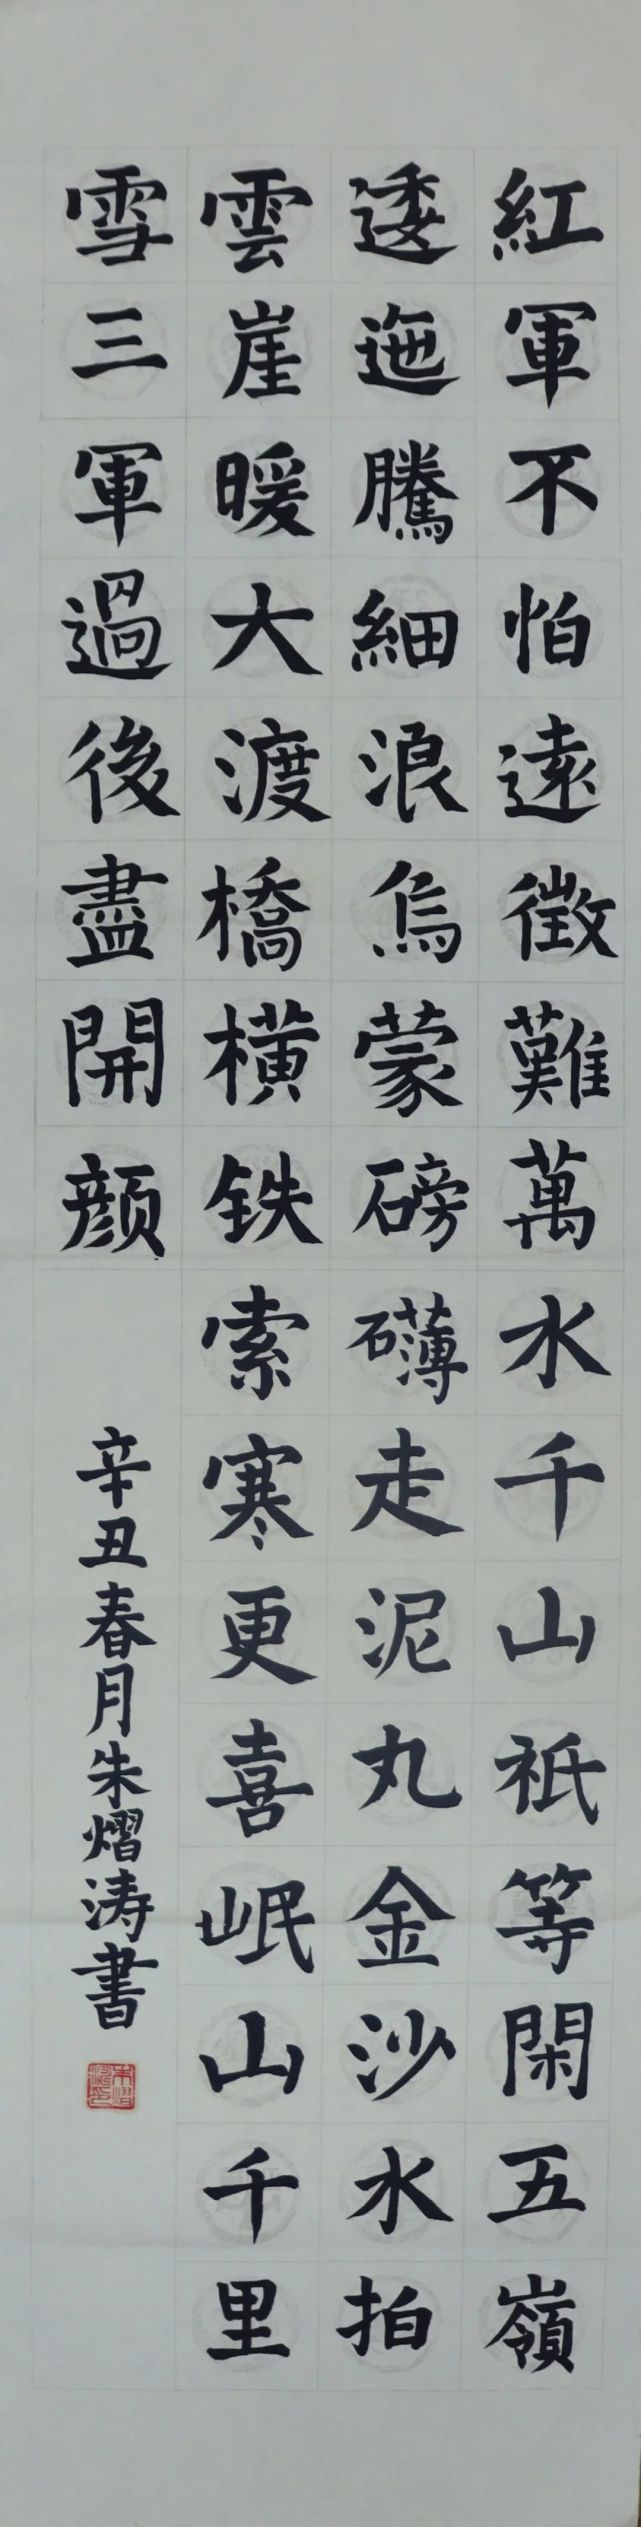 紅軍不怕遠徵難萬水千山祇等閑五嶺
逶迤騰細浪烏蒙磅礴走泥丸金沙水拍
雲崖暖大渡橋橫铁索寒更喜岷山千里
雪三軍過後盡開颜
辛丑春月朱熠涛書